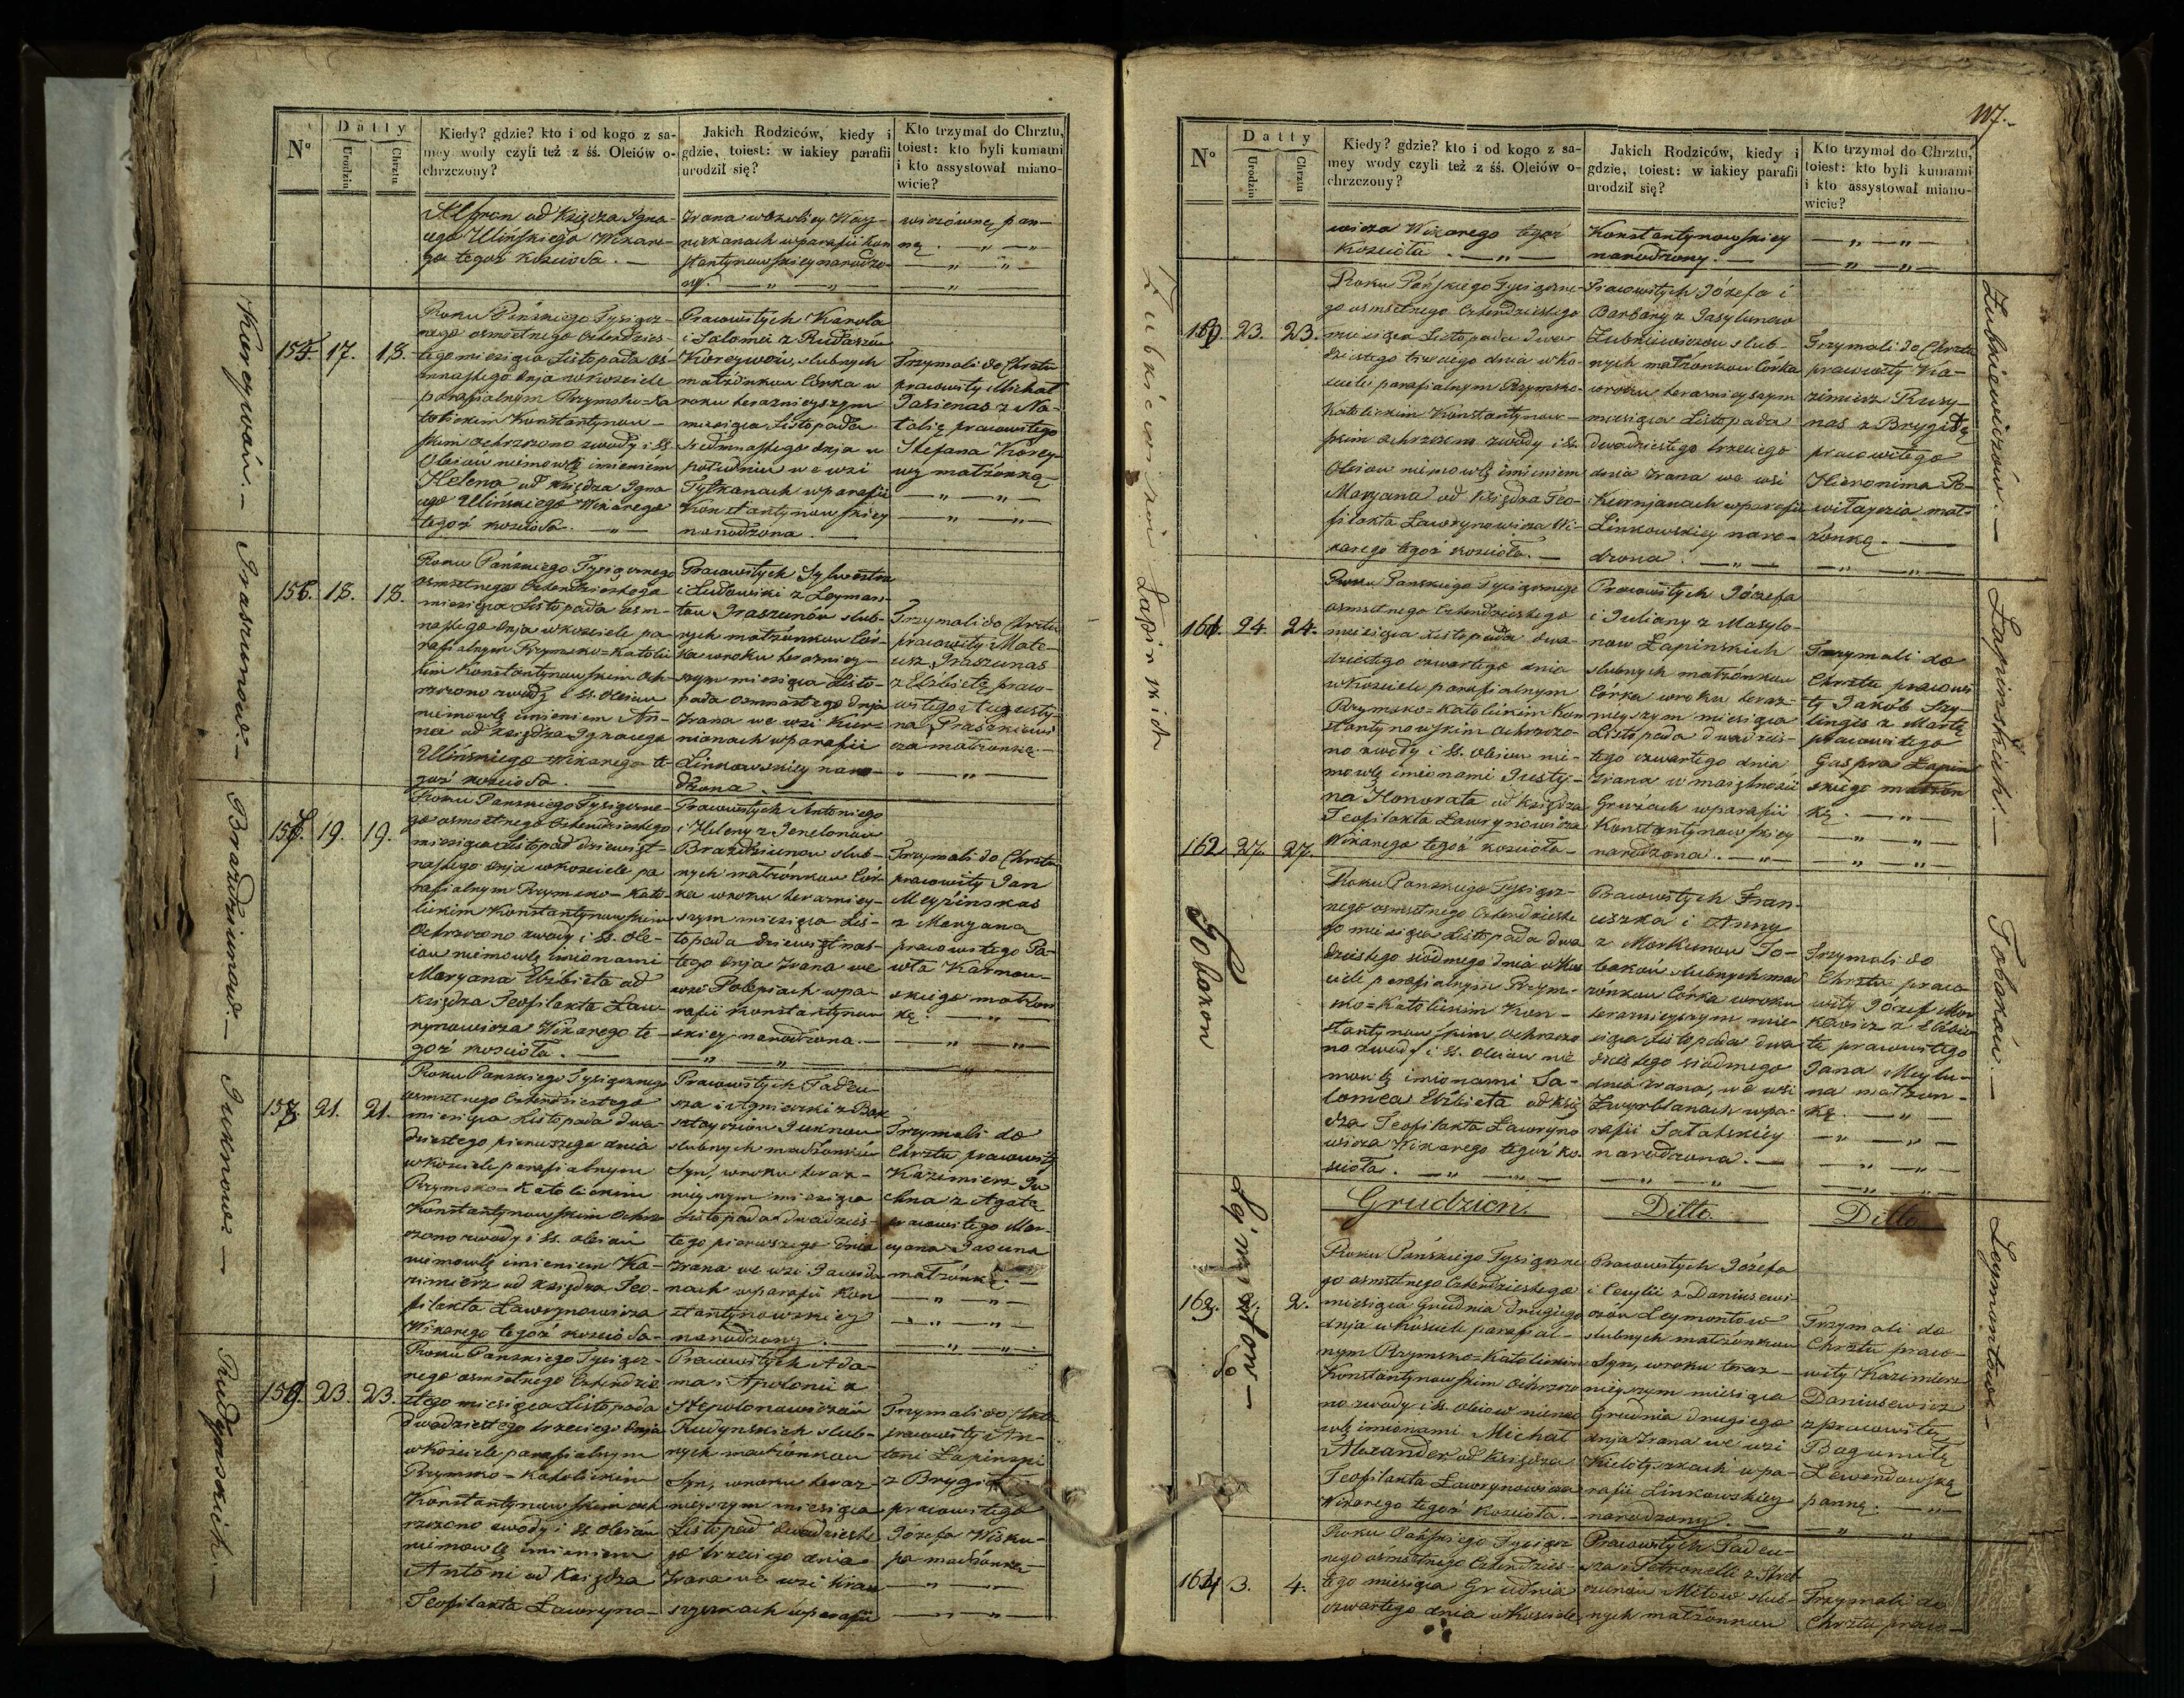 117.
N°
Datty
Urodzin
Chrztu
Kiedy? gdzie? kto i od kogo z sa-
mey wody czyli też z śś. Oleiów o-
chrzczony?
Jakich Rodziców, kiedy i
gdzie, toiest: w iakiey parafii
urodził się?
Kto trzymał do Chrztu,
toiest: kto byli kumami
i kto assystował miano-
wicie?
od Księdza Igna-
cego Ulińskiego Wikare-
go tegoż kościoła. —
w parafii Kon
stantynowskiey narodzo-
ny.
wiczówną pan-
ną.
Koreywów. —
17. 18.
Roku Pańskiego Tysiącz-
nego osmsetnego Czterdzies-
tego miesiąca Listopada os-
mnastego dnia w kościele
parafialnym Rzymsko-Ka
tolickim Konstantynow-
skim Ochrzczono z wody i SS.
Oleiów niemowlę imieniem
Helena od Księdza Igna
cego Ulińskiego Wikarego
tegoż kościoła.
Pracowitych Karola
i Salomei z Rudaszow
Koreywów, slubnych
małżonkow Córka w
roku teraznieyszym
miesiąca Listopada
Siedmnastego dnia w
południu we wsi
Tyszkanach w parafii
Konstantynowskiey
narodzona.
Trzymali do Chrztu
pracowity Michał
Jasienas z Na-
talią pracowitego
Stefana Korey-
wy małżonką
Praszunow. —
18. 18.
Roku Pańskiego Tysiącznego
osmsetnego Czterdziestego
miesiąca Listopada osm-
nastego dnia w kościele pa
rafialnym Rzymsko-Katolic
kim Konstantynowskim Och-
rzczono z wody i SS. Oleiow
niemowlę imieniem An-
na od Księdza Ignacego
Ulińskiego Wikarego te-
goż kościoła.
Pracowitych Sylwestra
i Ludowiki z Leymon-
tow Praszunów slub-
nych małżonkow Cór-
ka w roku teraźniey-
szym miesiąca Listo-
pada Osmnastego dnia
zrana we wsi Kur-
nionach w parafii
Linkowskiey naro-
dzona.
Trzymali do Chrztu
pracowity Mate-
usz Praszunas
z Elżbietą praco-
witego Augusty-
na Praszkiewi
cza małżonką. —
Brazdziunow. —
19. 19.
Roku Pańskiego Tysiączne-
go osmsetnego Czterdziestego
miesiąca Listopad dziewięt-
nastego dnia w kościele pa
rafialnym Rzymsko-Kato-
lickim Konstantynowskim
Ochrzczono z wody i SS. Ole-
iow niemowlę imionami
Maryana Elżbieta od
Księdza Teofilakta Ław-
rynowicza Wikarego te-
goż kościoła. —
Pracowitych Antoniego
i Heleny z Jenelonow
Brazdziunow slub-
nych małżonkow Cór-
ka w roku teraźniey-
szym miesiąca Lis-
topada dziewiętnas-
tego dnia zrana we
wsi Polepiach w pa-
rafii Konstantynow
skiey narodzona. —
Trzymali do Chrztu
pracowity Jan
Meyżinskas
z Maryaną
pracowitego Pa-
wła Karnow-
skiego małżon
ką.
Juknow. —
21. 21.
Roku Pańskiego Tysiącznego
osmsetnego Czterdziestego
miesiąca Listopada dwa-
dziestego pierwszego dnia
w kościele parafialnym
Rzymsko-Katolickim
Konstantynowskim Ochrz
czono z wody i SS. oleiów
niemowlę imieniem Ka-
zimierz od Księdza Teo-
filakta Ławrynowicza
Wikarego tegoż kościoła-
Pracowitych Tadeu-
sza i Agnieszki z
Juknow
slubnych małżonków
Syn, w roku teraz-
nieyszym miesiąca
Listopada dwadzies-
tego pierwszego dnia
zrana we wsi
nach w parafii Kon
stantynowskiey
narodzony.
Trzymali do
Chrztu pracowity
Kazimierz Ju
chna z Agatą
pracowitego Mar-
cyana Jasiuna
małżonką. —
Rudynskich. —
23. 23.
Roku Pańskiego Tysiącz-
nego osmsetnego Czterdzie
stego miesiąca Listopada
dwadziestego trzeciego dnia
w kościele parafialnym
Rzymsko-Katolickim
Konstantynowskim och
rzczono z wody i SS Oleiów
niemowlę imieniem
Antoni od Księdza
Teofilakta Ławryno-
Pracowitych Ada-
ma i Apolonii z
Stępolonowiczów
Rudynskich slub-
nych małżonkow
Syn, w roku teraz-
nieyszym miesiąca
Listopad dwadzieste
go trzeciego dnia
zrana we wsi
w parafii
Trzymali do Chrztu
pracowity An-
toni Łapinski
z Brygidą
pracowitego
Józefa Wisku-
pa małżonką
N°
Datty
Urodzin
Chrztu
Kiedy? gdzie? kto i od kogo z sa-
mey wody czyli też z śś. Oleiów o-
chrzczony?
Jakich Rodziców, kiedy i
gdzie, toiest: w iakiey parafii
urodził się?
Kto trzymał do Chrztu,
toiest: kto byli kumami
i kto assystował miano-
wicie?
wicza Wikarego tegoż
kościoła.
Konstantynowskiey
narodzony. —
Zubkiewiczów. —
23. 23.
Roku Pańskiego Tysiączne-
go osmsetnego Czterdziestego
miesiąca Listopada dwa-
dziestego trzeciego dnia w ko-
sciele parafialnym Rzymsko-
Katolickim Konstantynow-
skim ochrzczono z wody i SS.
Oleiow niemowlę imieniem
Maryana od Księdza Teo-
filakta Ławrynowicza Wi-
karego tegoż kościoła. —
Pracowitych Józefa i
Barbary z Jasylunow
Zubkiewiczow slub-
nych małżonkow Córka
w roku teraznieyszym
miesiąca Listopada
dwadziestego trzeciego
dnia zrana we wsi
Kurnjanach w parafii
Linkowskiey naro-
dzona.
Trzymali do Chrztu
pracowity Ka-
zimierz Ruzy-
nas z Brygidą
pracowitego
Hieronima Po-
wiłayczia mał-
żonką.
Łapinskich. —
24. 24.
Roku Pańskiego Tysiącznego
osmsetnego Czterdziestego
miesiąca Listopada dwa-
dziestego czwartego dnia
w kościele parafialnym
Rzymsko-Katolickim Kon
stantynowskim ochrzczo-
no z wody i SS. oleiow nie-
mowlę imionami Justy-
na Honorata od Księdza
Teofilakta Ławrynowicza
Wikarego tegoż kościoła-
Pracowitych Józefa
i Juliany z Masylo-
now Łapinskich
slubnych małżonkow
Córka w roku teraz-
nieyszym miesiąca
Listopada dwudzies-
tego czwartego dnia
zrana w maiętności
Grużach w parafii
Konstantynowskiey
narodzona.
Trzymali do
Chrztu pracowi
ty Jakób Szy-
lingis z Martą
pracowitego
Gaspra Łapin
skiego małżon
ką.
Tobakow
Tobaków. —
162. 27. 27.
Roku Pańskiego Tysiącz-
nego osmsetnego Czterdzieste
go miesiąca Listopada dwa
dziestego siodmego dnia w koś
ciele parafialnym Rzym-
sko-Katolickim Kon-
stantynowskim ochrzczo
no z wody i SS. oleiow nie
mowlę imionami Sa-
lomea Elżbieta od Księ
dza Teofilakta Ławryno
wicza Wikarego tegoż ko-
scioła.
Pracowitych Fran-
ciszka i Anny
z Markunow To-
bakow slubnych mał
żonkow Córka w roku
teraznieyszym mie-
siąca Listopada dwa
dziestego siodmego
dnia zrana, we wsi
Zwyrblanach w pa-
rafii Sałatskiey
narodzona. —
Trzymali do
Chrztu praco-
wity Józef Mar
kiewicz z Elżbie
tą pracowitego
Jana Meylu-
na małżon-
ką.
Grudzień.
Ditto.
Ditto
Leymontów —
163. 2. 2.
Roku Pańskiego Tysiączne
go osmsetnego Czterdziestego
miesiąca Grudnia drugiego
dnia w kościele parafial-
nym Rzymsko-Katolickim
Konstantynowskim Ochrzczo
no z wody i SS. oleiow niemo
wlę imionami Michał
Alexander od Księdza
Teofilakta Ławrynowicza
Wikarego tegoż kościoła. —
Pracowitych Józefa
i Cecylii z Daniusewi-
czów Leymontow
slubnych małżonkow
Syn, w roku teraz-
nieyszym miesiąca
Grudnia drugiego
dnia zrana we wsi
w pa-
rafii Linkowskiey
narodzony. —
Trzymali do
Chrztu praco-
wity Kazimierz
Daniusewicz
z pracowitą
Bogumiłą
Lewendowską
panną.
164 3. 4.
Roku Pańskiego Tysiącz
nego osmsetnego Czterdzies-
tego miesiąca Grudnia
czwartego dnia w kościele
Pracowitych Tadeu-
sza i Petronelli z
Mitow slub-
nych małżonkow
Trzymali do
Chrztu praco-